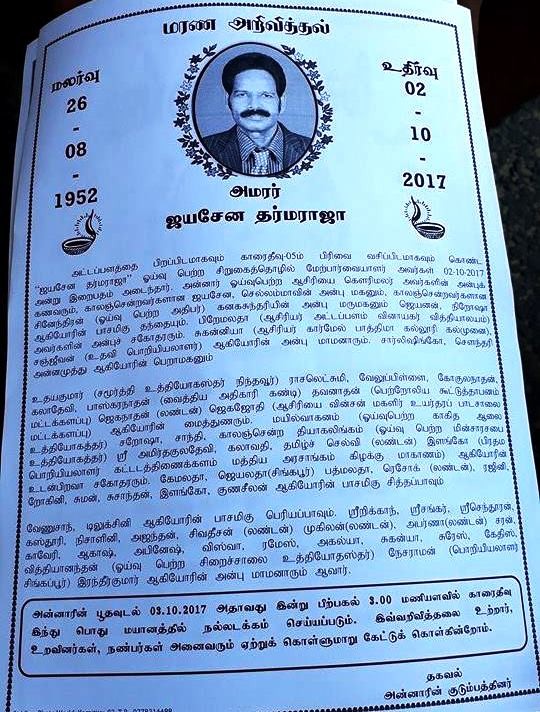 மரண அறிவித்தல்
மலர்வு
26
-
08
-
1952
உதிர்வு
02
-
10
-
2017
அமரர்
ஜயசேன தர்மராஜா
அட்டப்பளத்தை பிறப்பிடமாகவும் காரைதீவு-05ம் பிரிவை வசிப்பிடமாகவும் கொண்ட
"ஜயசேன தர்மராஜா" ஓய்வு பெற்ற சிறுகைத்தொழில் மேற்பார்வையாளர் அவர்கள் 02-10-2017
அன்று இறைபதம் அடைந்தார். அன்னார் ஓய்வுபெற்ற ஆசிரியை கௌரிமலர் அவர்களின் அன்புக்
கணவரும், காலஞ்சென்றவர்களான ஜயசேன, செல்லம்மாவின் அன்பு மகனும், காலஞ்சென்றவர்களான
சினேந்திரன் (ஓய்வு பெற்ற அதிபர்) கனகசுந்தரியின் அன்பு மருமகனும் ஜெயனன், நிறோஷா
ஆகியோரின் பாசமிகு தந்தையும், பிறேமலதா (ஆசிரியர் அட்டப்பளம் விநாயகர் வித்தியாலயம்)
அவர்களின் அன்புச் சகோதரரும், சுகன்னியா (ஆசிரியர் கார்மேல் பாத்திமா கல்லூரி கல்முனை)
சஞ்சீவன் (உதவி பொறியியலாளர்) ஆகியோரின் அன்பு மாமனாரும், சார்லிஷிங்கோ, சௌந்தரி
அன்னமுத்து ஆகியோரின் பெறாமகனும்
உதயகுமார் (சமூர்த்தி உத்தியோகஸ்தர் நிந்தவூர்) ராசலெட்சுமி, வேலுப்பிள்ளை, கோகுலநாதன்,
கலாதேவி, பாஸ்கரநாதன் (வைத்திய அதிகாரி கண்டி) தவனாதன் (பெற்றோலிய கூட்டுத்தாபனம்
மட்டக்களப்பு) ஜெகநாதன் (லண்டன்) ஜெகஜோதி (ஆசிரியை வின்சன் மகளிர் உயர்தரப் பாடசாலை
மட்டக்களப்பு) ஆகியோரின் மைத்துனரும், மயில்வாகனம் (ஓய்வுபெற்ற காகித ஆலை
உத்தியோகத்தர்) சறோஷா, சாந்தி, காலஞ்சென்ற தியாகலிங்கம் (ஓய்வு பெற்ற மின்சாரசபை
உத்தியோகத்தர்) ஸ்ரீ அமிர்தகுலதேவி, கலாவதி, தமிழ்ச் செல்வி (லண்டன்) இளங்கோ (பிரதம
பொறியியலாளர் கட்டடத்திணைக்களம் மத்திய அரசாங்கம் கிழக்கு மாகாணம்) ஆகியோரின்
உடன்பிறவா சகோதரரும், கேமலதா, ஜெயலதா(சிங்கப்பூர்) பத்மலதா, ரெசோக் (லண்டன்), ரஜினி,
றோகினி, சுமன், சுசாந்தன், இளங்கோ, குணசீலன் ஆகியோரின் பாசமிகு சித்தப்பாவும்
வேணுசாந், டிலுக்சினி ஆகியோரின் பாசமிகு பெரியப்பாவும், ஸ்ரீறிகாந், ஸ்ரீசங்கர், ஸ்ரீசெந்தூரன்,
கஸ்தூரி, நிசாளினி, அஜந்தன், சிவதீசன் (லண்டன்) முகிலன்(லண்டன்), அபர்ணா(லண்டன்) சரன்,
காவேரி, ஆகாஷ், அபினேஷ், விஸ்வா, ரமேஸ், அகல்யா, சுகன்யா, சுரேஸ், கேதிஸ்,
வித்தியானந்தன் (ஓய்வு பெற்ற சிறைச்சாலை உத்தியோதஸ்தர்) நேசராமன் (பொறியியலாளர்
சிங்கப்பூர்) இரந்திரகுமார் ஆகியோரின் அன்பு மாமனாரும் ஆவார்.
அன்னாரின் பூதவுடல் 03.10.2017 அதாவது இன்று பிற்பகல் 3.00 மணியளவில் காரைதீவு
இந்து பொது மயானத்தில் நல்லடக்கம் செய்யப்படும். இவ்வறிவித்தலை உற்றார்,
உறவினர்கள், நண்பர்கள் அனைவரும் ஏற்றுக் கொள்ளுமாறு கேட்டுக் கொள்கின்றோம்.
தகவல்
அன்னாரின் குடும்பத்தினர்